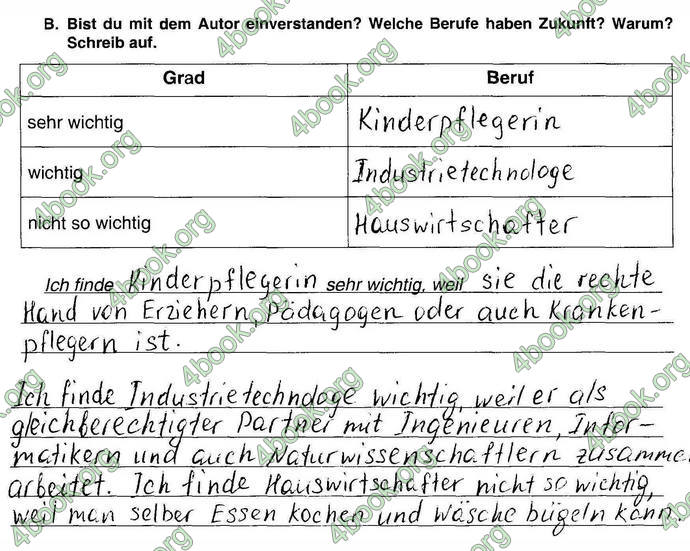 B. Bist du mit dem Autor einverstanden? Welche Berufe haben Zukunft? Warum?
Schreib auf.
Grad Beruf
sehr wichtig Kinderpflegerin
wichtig Industrietechnologe
nicht so wichtig Hauswirtschafter
Ich finde Kinderpflegerin sehr wichtig, weil sie die rechte
Hand von Erziehern, Pädagogen oder auch Kranken-
pflegern ist.
Ich finde Industrietechnologe wichtig, weil er als
gleichberechtigter Partner mit Ingenieuren, Infor-
matikern und auch Naturwissenschaftlern zusamme
arbeitet. Ich finde Hauswirtschafter nicht so wichtig,
weil man selber Essen kochen und Wäsche bügeln kann.
4book.org